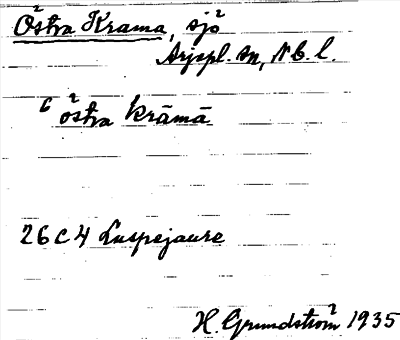 Östra Krama, sjö
Arjepl. sn, Nb. l.
östra krāmā
26 C 4 Luspejaure
H. Grundström 1935